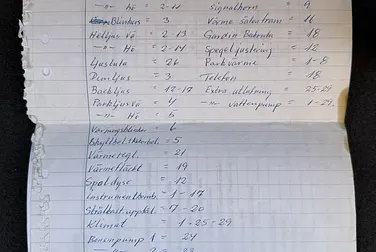 -"- Hö = 2-11 Signalhorn = 9
Blinkers = 3 Värme säten fram = 16
Helljus vä = 2-13 Gardin Bakruta = 18
-"- Hö = 2-14 Spegeljustering = 12
Ljustuta = 26 Park värme = 1-8
Dimljus = 3 Telefon = 18
Backljus = 12-17 Extra utledning = 25-29
Parkljus vä = 4 -"- Vattenpump = 1-29
-"- Hö = 5
Varningsblinker = 6
= 5
Värmeregl. = 21
Värmefläckt = 19
Spoldysc = 12
Instrumentbomb. = 1-17
= 17-20
Klimat = 1-25-29
Bensinpump 1 = 24
2 = 23